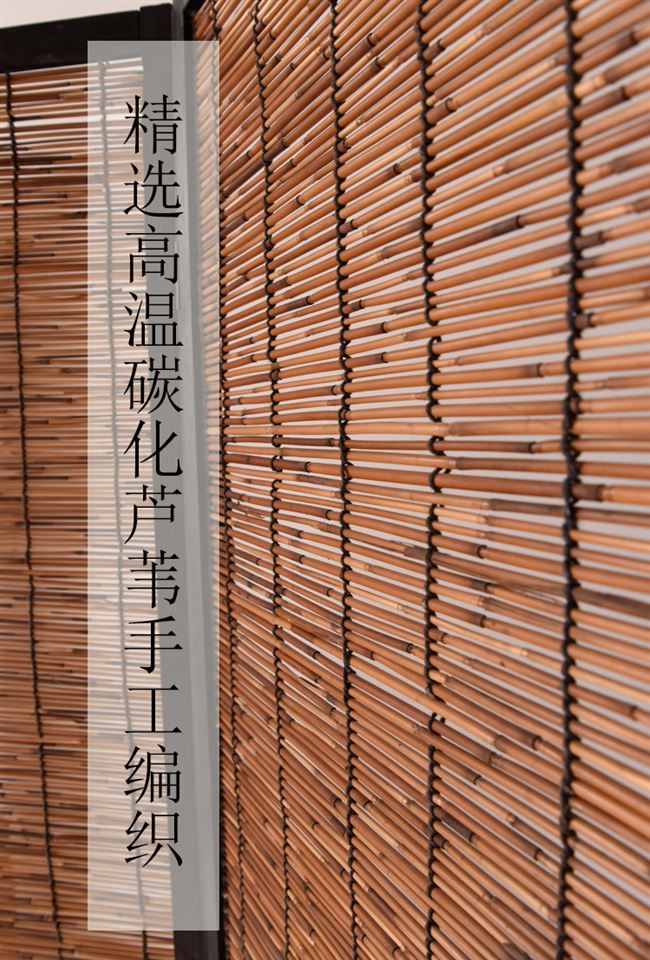 精选高温碳化芦苇手工编织